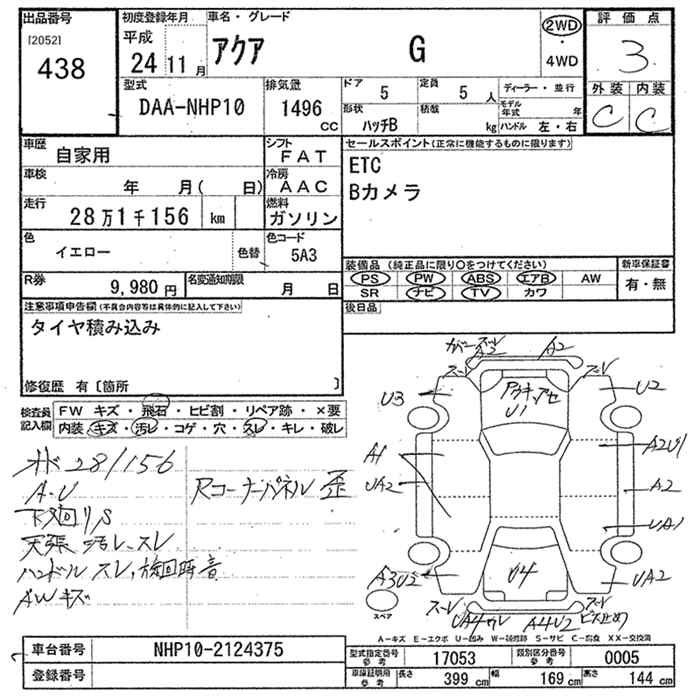 出品番号
[2052]
438
初度登録年月
平成
24 11 月
車名・グレード
アクア G
2WD
・
4WD
評価点
3
外装 内装
C C
型式
DAA-NHP10
排気量
1496
CC
ドア
5
定員
5 人
形状
ハッチB
積載
kg
ディーラー・並行
モデル年式 年
ハンドル 左・右
車歴
自家用
シフト
FAT
車検
年 月( 日)
冷房
AAC
走行
28万1千156 km
燃料
ガソリン
色
イエロー
色替
色コード
5A3
R券
9,980 円
名変通知期限
月 日
セールスポイント(正常に機能するものに限ります)
ETC
Bカメラ
装備品 (純正品に限り○をつけてください)
PS PW ABS エアB AW
SR ナビ TV カワ
新車保証書
有・無
後日品
注意事項申告欄(不具合内容等は具体的に記入して下さい)
タイヤ積み込み
修復歴 有〔箇所 〕
検査員記入欄
FW キズ・飛石・ヒビ割・リペア跡・×要
内装・キズ・汚レ・コゲ・穴・スレ・キレ・破レ
オド 28/156
A・U
下回りS
天張 汚レ、スレ
ハンドル スレ,旋回時音
AWキズ
Rコーナーパネル 歪
ガーズレ
A2
A2
ズレ
ズレ
U3
U2
U1
A1
UA2
A2U1
A2
UA1
A3U2
U4
UA2
ズレ
ズレ
A4U2
ビス止め
スペア
A-キズ E-エクボ U-凹み W-補修跡 S-サビ C-腐食 XX-交換済
車台番号
NHP10-2124375
登録番号
型式指定番号 参考
17053
類別区分番号 参考
0005
車庫証明用 参考
長さ 399 cm
幅 169 cm
高さ 144 cm